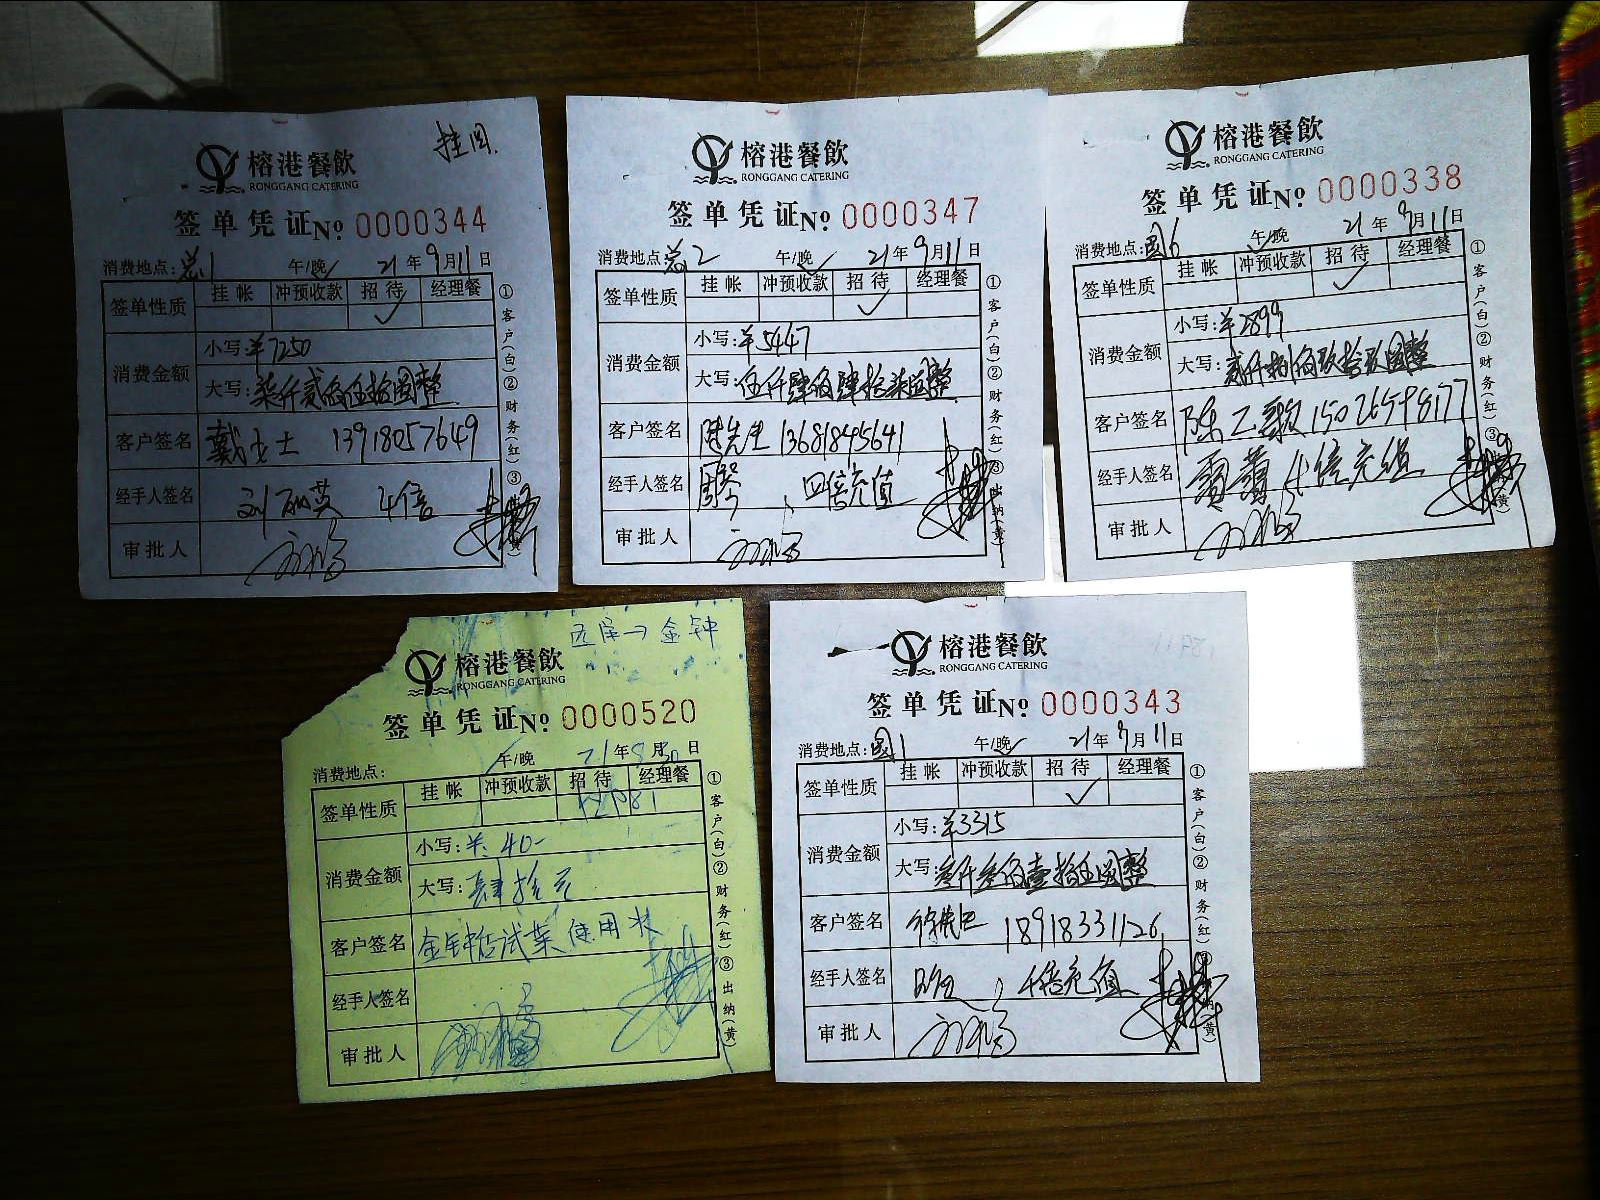 挂图.
榕港餐飲
RONGGANG CATERING
签单凭证 No 0000344
消费地点: 1 午/晚 21年9月11日
签单性质 挂帐 冲预收款 招待 经理餐
✓
消费金额 小写:¥7250
大写:柒仟贰佰伍拾圆整
客户签名 戴女士 13918057649
经手人签名 刘丽英 4倍
审批人
①客户(白)②财务(红)③
榕港餐飲
RONGGANG CATERING
签单凭证 No 0000347
消费地点: 2 午/晚 21年9月11日
签单性质 挂帐 冲预收款 招待 经理餐
✓
消费金额 小写:¥5447
大写:伍仟肆佰肆拾柒圆整
客户签名 陆先生 13681845641
经手人签名 周琴、四倍充值
审批人
①客户(白)②财务(红)③出纳(黄)
榕港餐飲
RONGGANG CATERING
签单凭证 No 0000338
消费地点:国6 午/晚 21年9月11日
签单性质 挂帐 冲预收款 招待 经理餐
✓
消费金额 小写:¥2899
大写:贰仟捌佰玖拾玖圆整
客户签名 15026598177
经手人签名 4倍充值
审批人
①客户(白)②财务(红)③(黄)
→金钟
榕港餐飲
RONGGANG CATERING
签单凭证 No 0000520
消费地点: 午/晚 21年8月30日
签单性质 挂帐 冲预收款 招待 经理餐
消费金额 小写:¥:40-
大写:肆拾元
客户签名 金钟店试菜使用
经手人签名
审批人
①客户(白)②财务(红)③出纳(黄)
榕港餐飲
RONGGANG CATERING
签单凭证 No 0000343
消费地点:国1 午/晚 21年9月11日
签单性质 挂帐 冲预收款 招待 经理餐
✓
消费金额 小写:¥3315
大写:叁仟叁佰壹拾伍圆整
客户签名 18918331126
经手人签名 4倍充值
审批人
①客户(白)②财务(红)纳(黄)